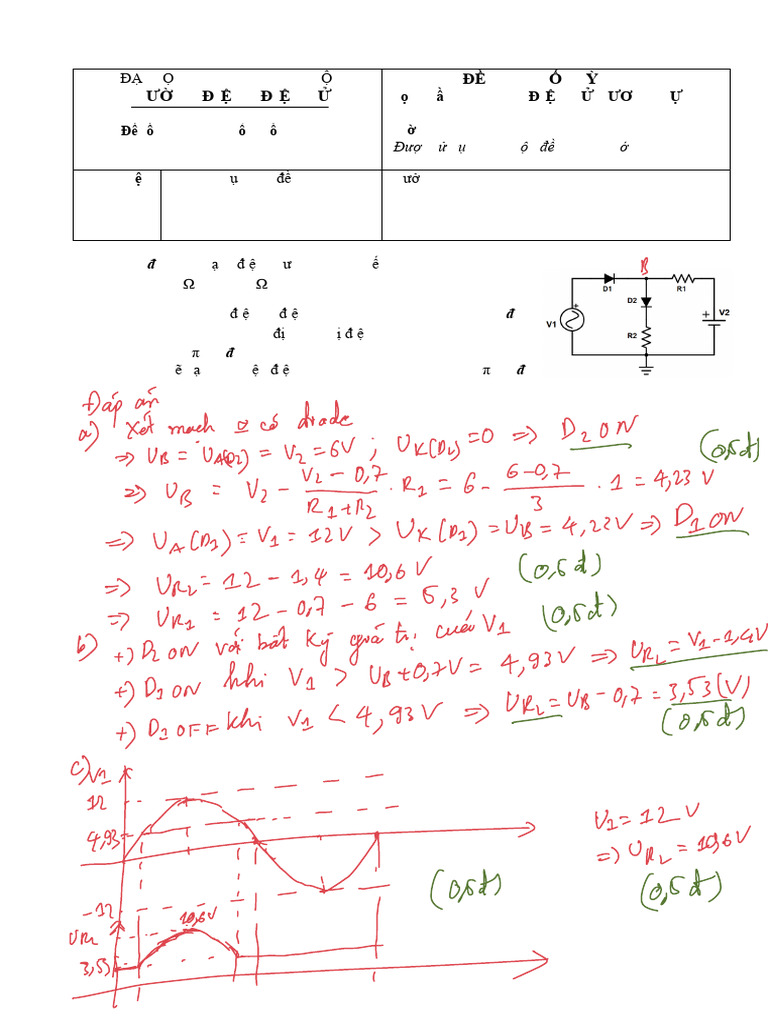 ĐẠ Ọ Ộ
ƯỜ Đ Ệ Đ Ệ Ử
Đê ô ô ô
ĐỀ Ố Ỳ
ọ ầ Đ Ệ Ử ƯƠ Ự
ờ
Đượ ử ụ ộ đề ớ
ệ ụ đề ưở
đ ạ đ ệ ư ế
Ω Ω
đ ệ đ ệ đ
đị ị đ ệ
π đ
ẽ ạ ệ đ ệ π đ
B
D1 R1
D2
V1 + + V2
R2
Đáp án
a) Xét mạch có diode
=> UB = UA(D2) = V2 = 6V ; UK(D2) = 0 => D2 ON
(0,5đ)
=> UB = V2 - (V2 - 0,7)/(R1+R2) . R1 = 6 - (6-0,7)/3 . 1 = 4,23 V
=> UA(D1) = V1 = 12V > UK(D1) = UB = 4,22V => D1 ON
=> UR2 = 12 - 1,4 = 10,6 V (0,5đ)
=> UR1 = 12 - 0,7 - 6 = 5,3 V (0,5đ)
b) +) D2 ON với bất kỳ giá trị của V1
+) D1 ON khi V1 > UB + 0,7V = 4,93V => UR2 = V1 - 1,4V
+) D1 OFF khi V1 < 4,93V => UR2 = UB - 0,7 = 3,53 (V)
(0,5đ)
c) V1
12
4,93
-12
UR2
10,6V
3,53
(0,5đ)
V1 = 12 V
=> UR2 = 10,6V
(0,5đ)